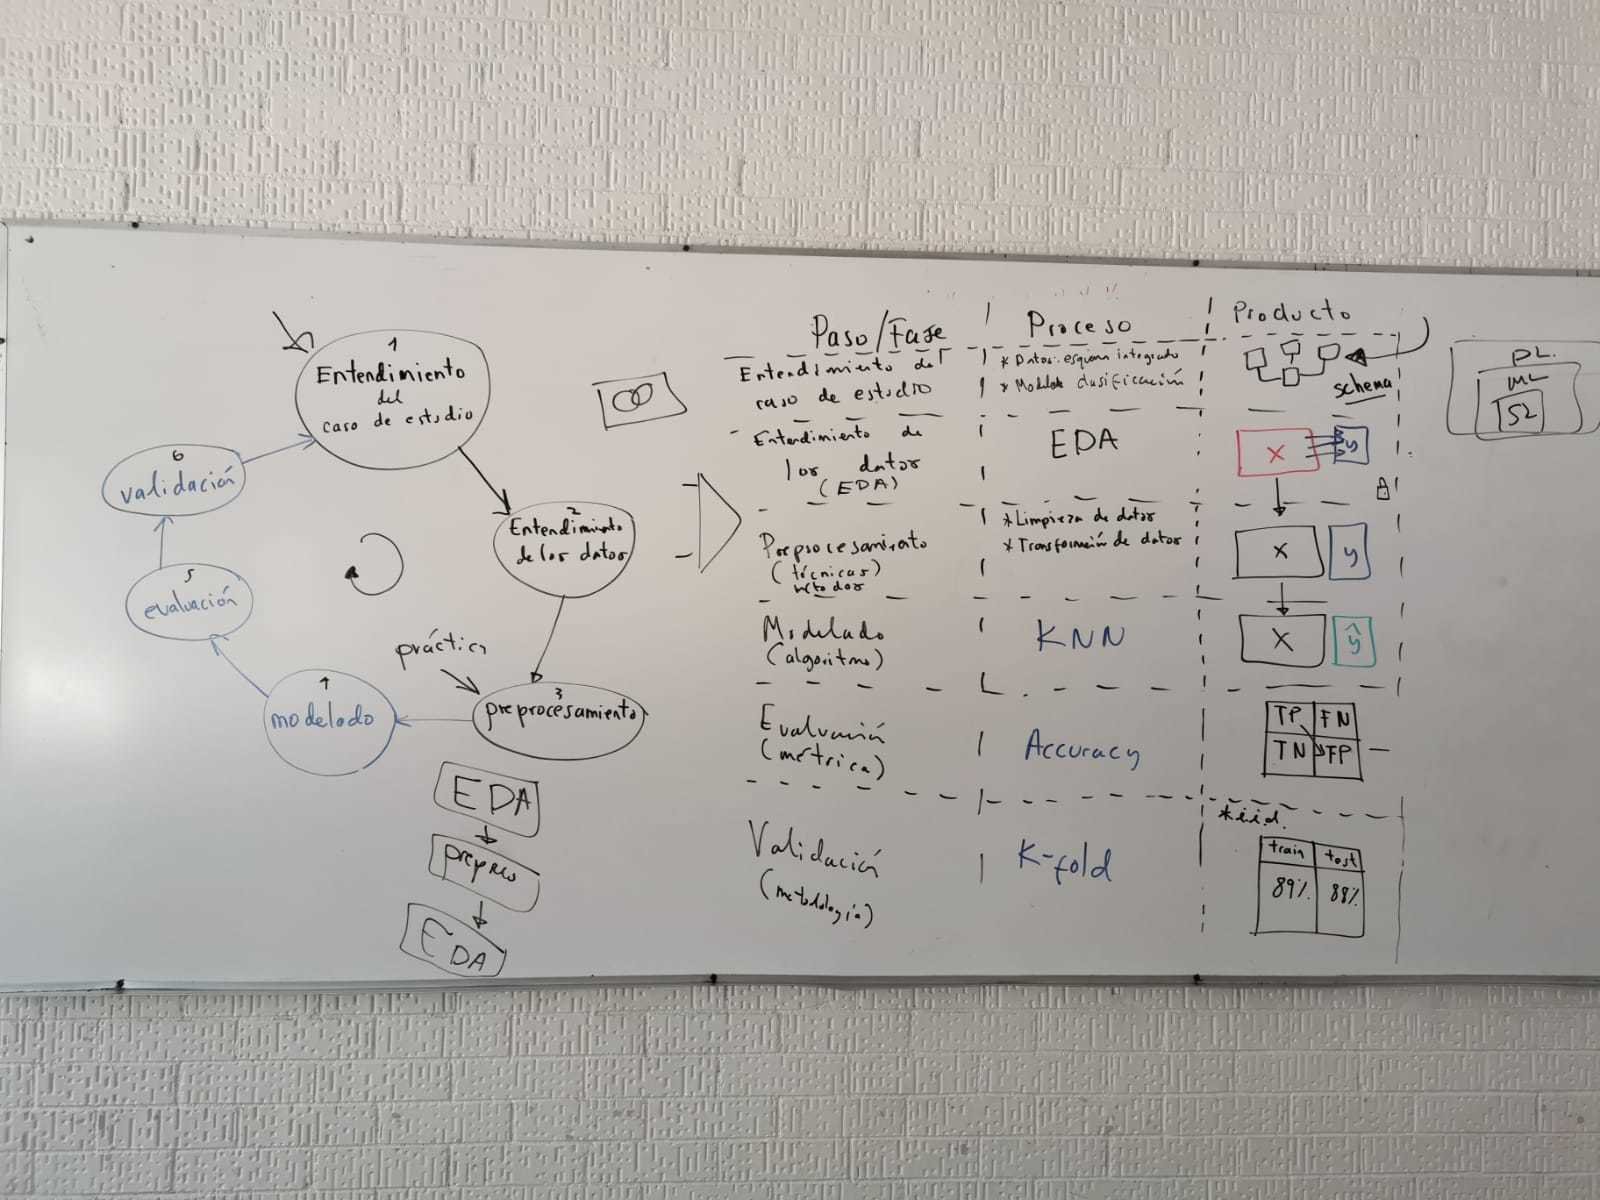 1
Entendimiento
del
caso de estudio
2
Entendimiento
de los datos
práctica
3
preprocesamiento
modelado
5
evaluación
6
validación
EDA
EDA
Paso/Fase
Proceso
Producto
Entendimiento del
caso de estudio
* Datos: esquema integrado
* Modelo clasificación
schema
Entendimiento de
los datos
(EDA)
EDA
X
y
Preprocesamiento
(técnicas)
métodos
* Limpieza de datos
* Transformación de datos
X
y
Modelado
(algoritmo)
KNN
X
ŷ
Evaluación
(métrica)
Accuracy
TP FN
TN FP
Validación
(metodología)
K-fold
*i.i.d.
train test
89% 88%
ML